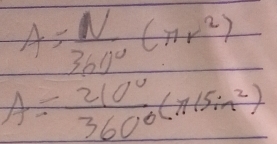 A = N/360° (πr²)
A = 210°/360° (π15in²)